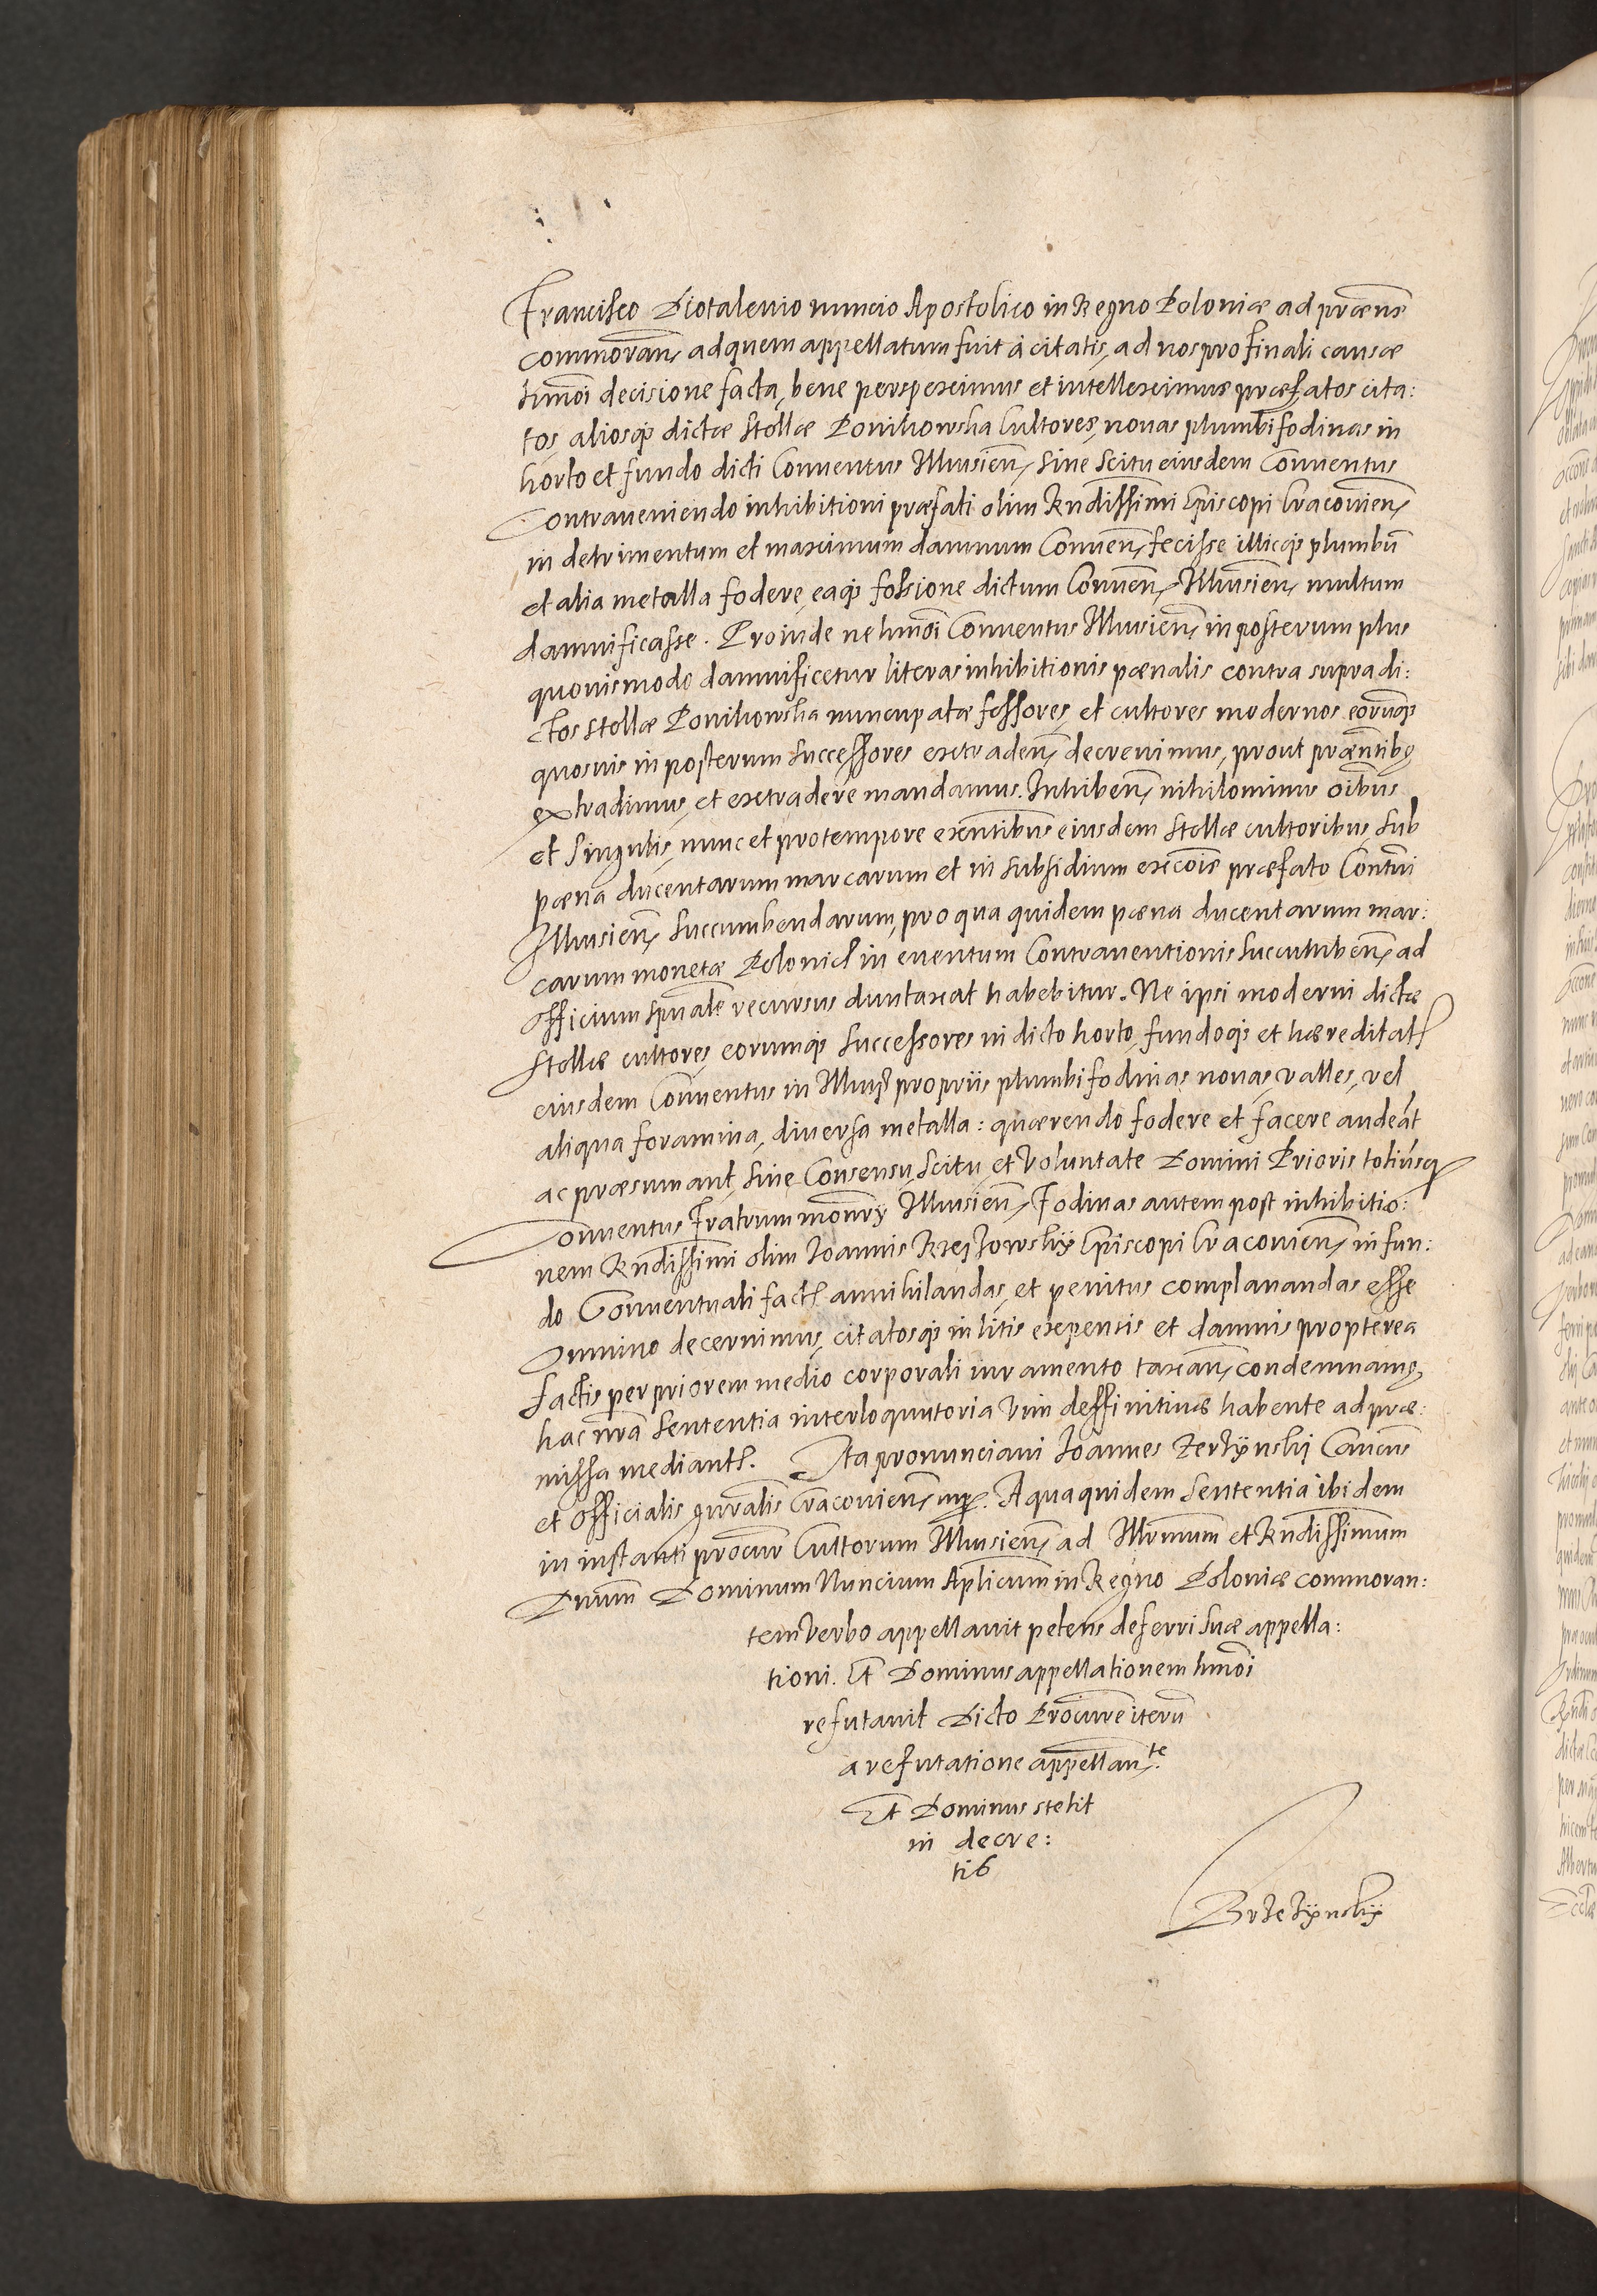 Francisco Diotalevio nuncio Apostolico in Regno Poloniæ ad præsens
commoran̄, ad quem appellatum fuit à citatis, ad nos pro finali causæ
hmōi decisione facta, bene perspeximus et intelleximus præfatos cita:
tos, aliosq3 dictæ Stollæ Ponikowska Cultores, novas plumbifodinas in
horto et fundo dicti Conventus Illkusien̄, sine scitu eiusdem Conventus
Contraveniendo inhibitioni præfati olim Rndissimi Episcopi Cracovien̄
in detrimentum et maximum damnum Conven̄, fecisse illicq3 plumbū
et alia metalla fodere, eaq3 fossione dictum Conven̄, Illkusien̄, multum
damnificasse. Proinde ne hmōi Conventus Illkusien̄ in posterum plus
quovismodo damnificetur literas inhibitionis pœnalis contra supradi:
ctos Stollæ Ponikowska nuncupatæ fossores, et cultores modernos eorumq3
quosvis in posterum successores extraden̄, decrevimus, prout præsentibus
extradimus, et extradere mandamus. Inhiben̄, nihilominus oībus
et singulis, nunc et protempore existentibus eiusdem Stollæ cultoribus sub
pœna ducentarum marcarum et in subsidium excōis præfato Contui
Illkusien̄, succumbendarum, pro qua quidem pœna ducentarum mar:
carum monetæ Polonicl in eventum Contraventionis succumben̄, ad
officium spūale recursus duntaxat habebitur. Ne ipsi moderni dictæ
Stollæ cultores, eorumq3 successores in dicto horto, fundoq3 et hæreditate
eiusdem Conventus in Illkus propriis plumbifodinas novas, valles, vel
aliqua foramina, diversa metalla: quærendo fodere et facere audeāt
ac præsumant, sine Consensu, scitu, et voluntate Domini Prioris totiusq3
Conventus Fratrum monrÿ Illkusien̄, Fodinas autem post inhibitio:
nem Rndissimi olim Ioannis Rzeszowskÿ Episcopi Cracovien̄, in fun:
do Conventuali fact annihilandas, et penitus complanandas esse
omnino decernimus, citatosq3 in litis expensis et damnis propterea
factis per priorem medio corporali iuramento taxan̄, condemnamus
hac nrā sententia interloqutoria vim deffinitivæ habente ad præ:
missa mediante. Ita pronunciavi Ioannes Zerzÿnskÿ Cancus
et officialis gnralis Cracovien̄, mp. A qua quidem sententia ibidem
in instanti procur Cultorum Illkusien̄, ad Illrmum et Rndissimum
Dnum Dominum Nuncium Aplicum in Regno Poloniæ commoran:
tem verbo appellavit petens deferri suæ appella:
tioni. Et Dominus appellationem hmōi
refutavit Dicto Procure iterū
a refutatione appellan.te
Et Dominus stetit
in decre:
tis
Brzezÿnskÿ